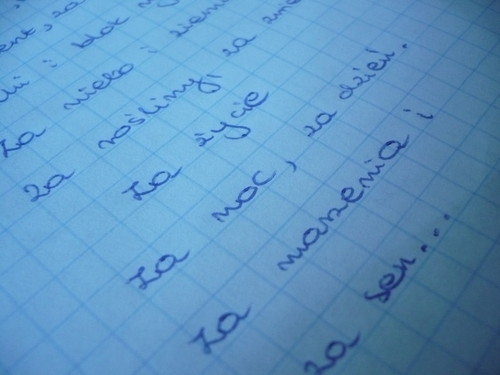 ent, za
i blok
Za niebo i ziemi
za rośliny, za
Za życie
Za noc, za dzień.
Za marzenia i
za sen...